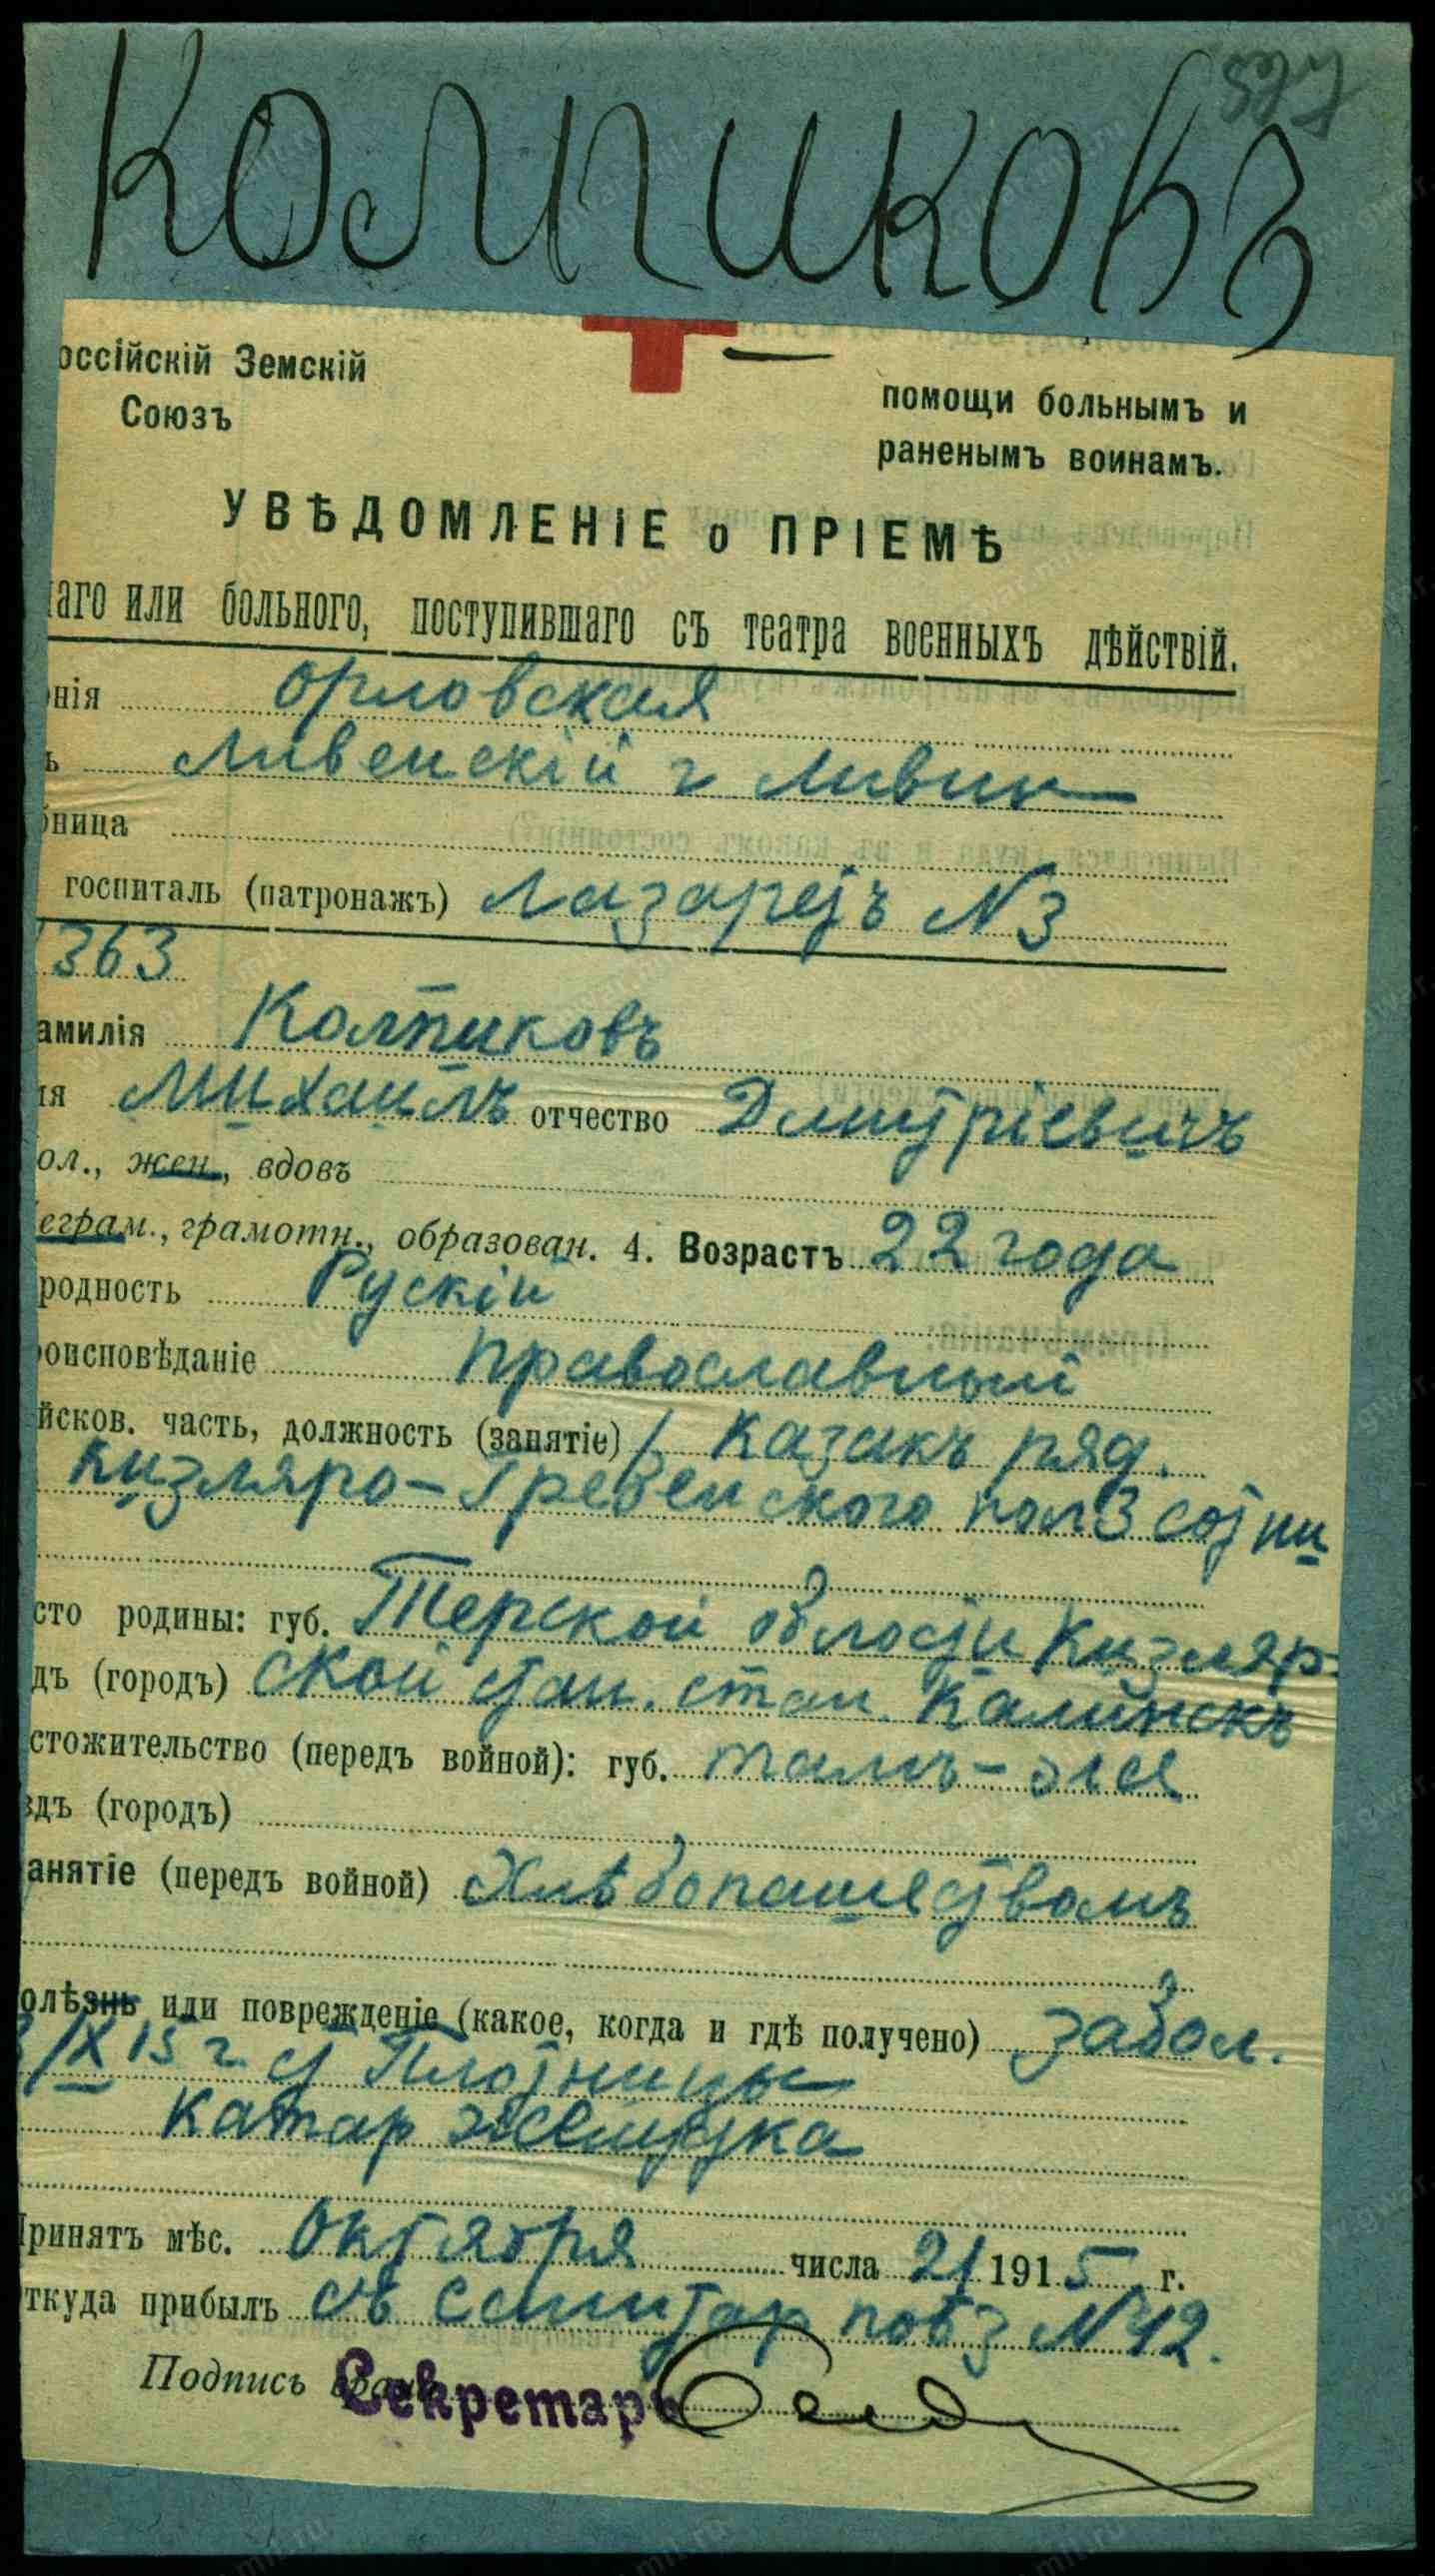 Колпиковъ
оссійскій Земскій
Союзъ
помощи больнымъ и
раненымъ воинамъ.
УВѢДОМЛЕНІЕ о ПРІЕМѢ
наго или больного, поступившаго съ театра военныхъ дѣйствій.
нія Орловская
ъ Ливенскій г Ливны
бница
госпиталь (патронажъ) Лазаретъ N 3
363
амилія Колпиковъ
мя Михаилъ отчество Дмитріевичъ
ол., жен., вдовъ
еграм., грамотн., образован. 4. Возрастъ 22 года
родность Рускій
роисповѣданіе православный
йсков. часть, должность (занятіе) Казакъ ряд.
Кизляро-Гребенского пол 3 сотни
сто родины: губ. Терской области Кизляр-
дъ (городъ) ской стан. стан.
стожительство (передъ войной): губ. тамъ-же
здъ (городъ)
анятіе (передъ войной) Хлѣбопашествомъ
олѣзнь или поврежденіе (какое, когда и гдѣ получено) забол.
/IX 15 г. Плотницы
Катар желудка
Принятъ мѣс. Октября числа 21 1915 г.
ткуда прибылъ съ санитар поѣз N 42.
Подпись
Секретарь